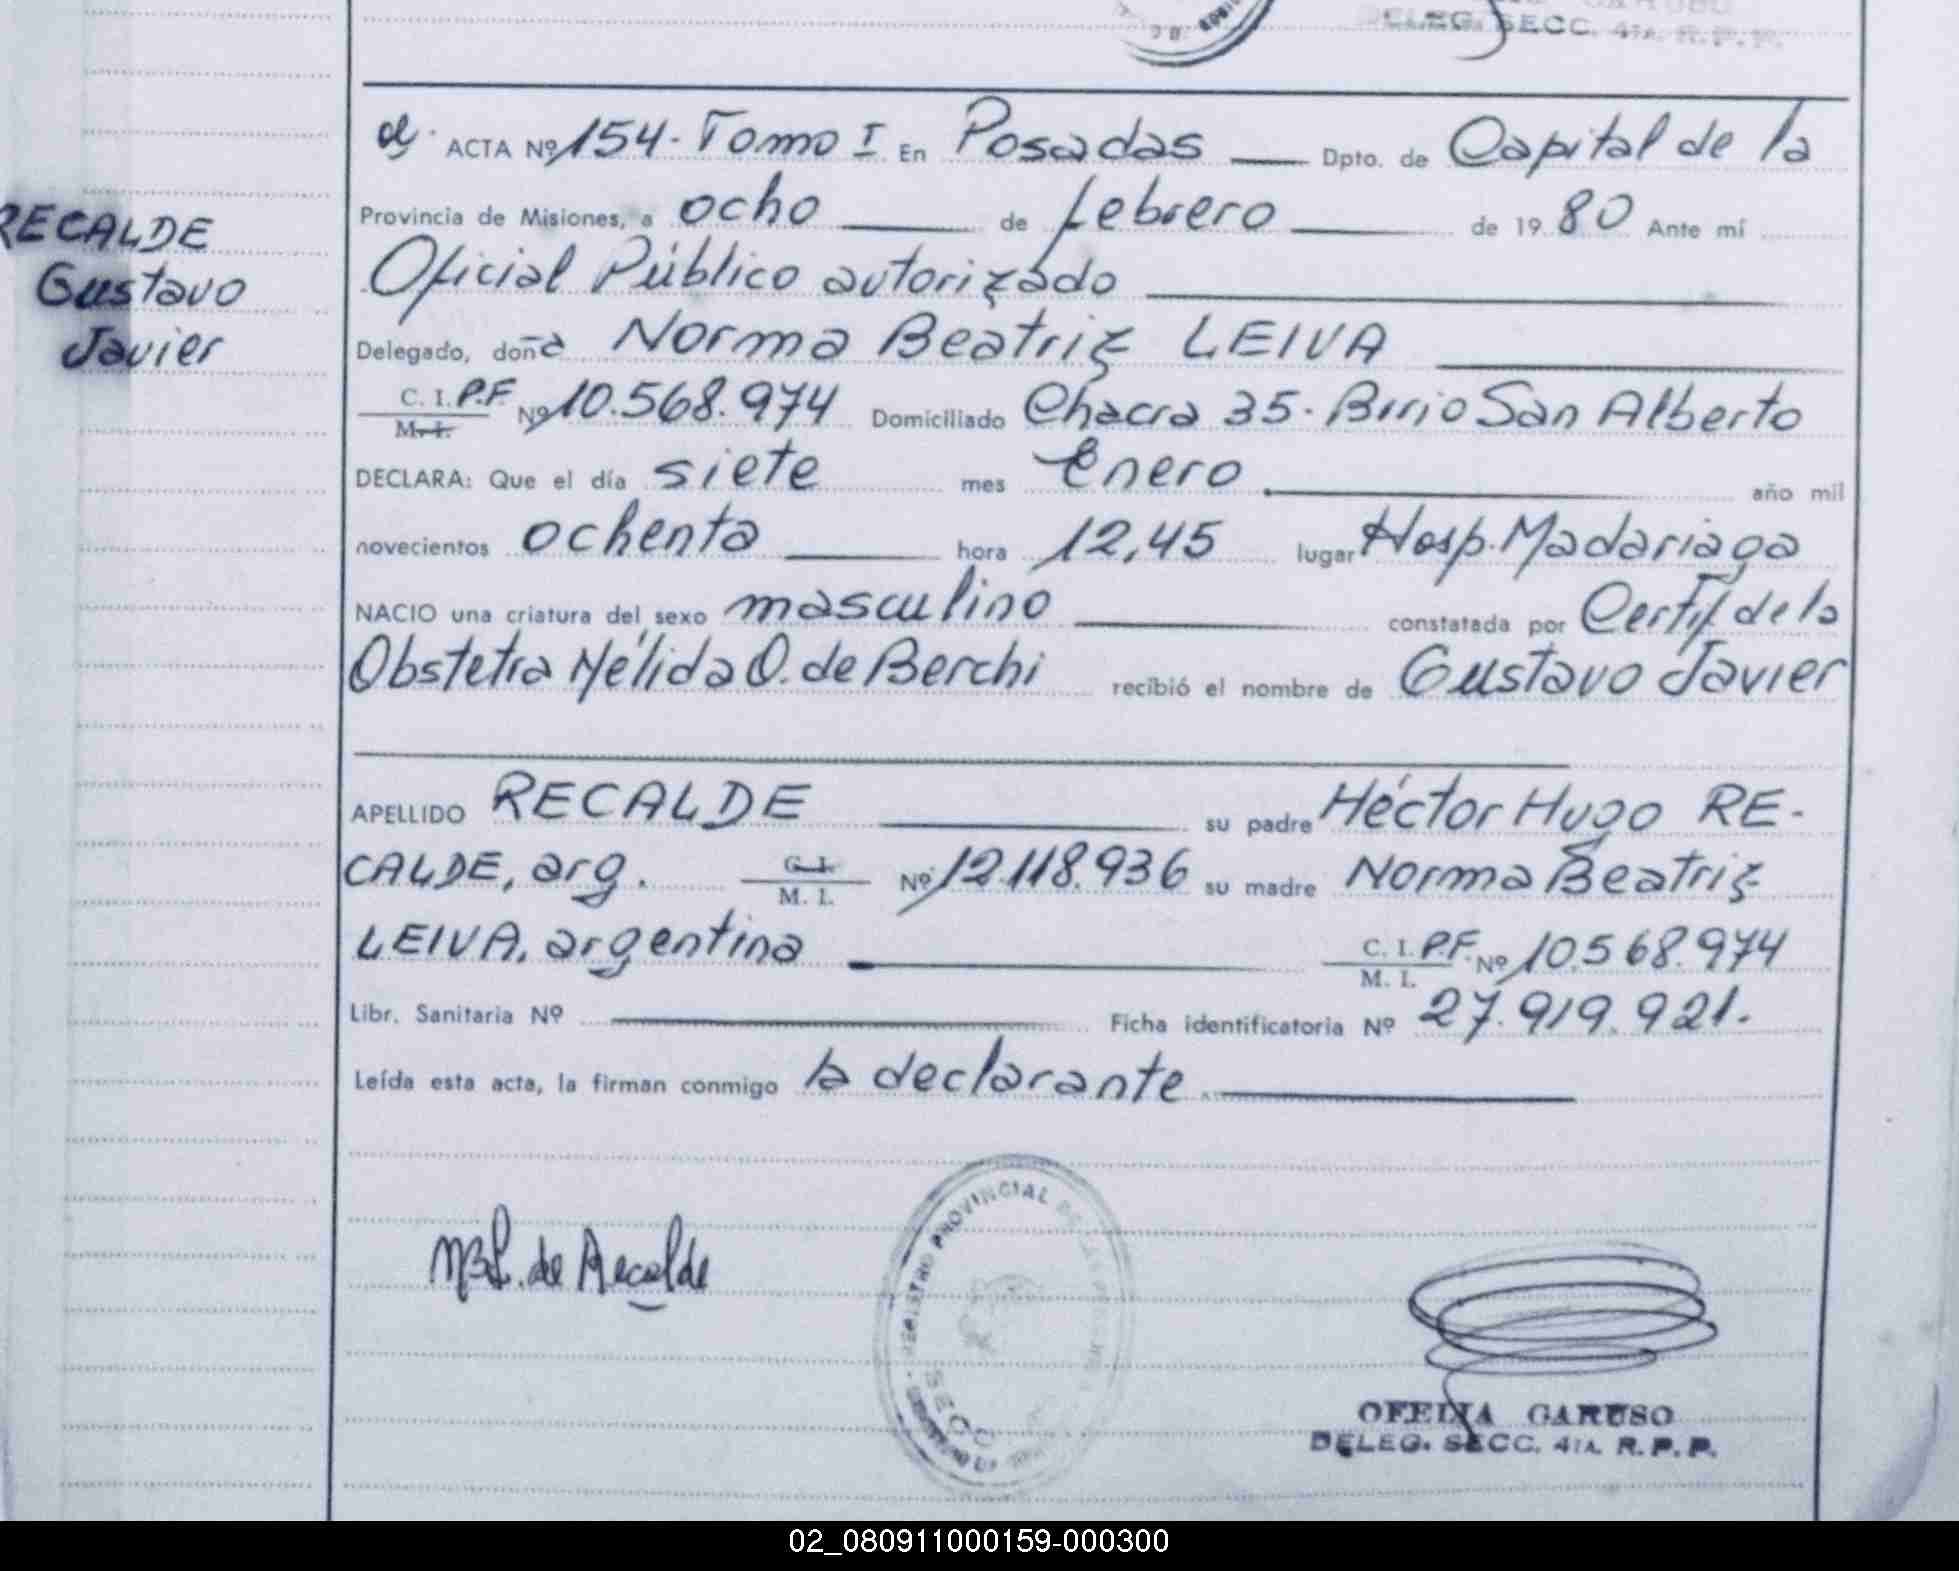 DELEG. SECC. 4TA. R.P.P.
ACTA Nº 154 - Tomo I En Posadas Dpto. de Capital de la
Provincia de Misiones, a ocho de febrero de 1980 Ante mí
Oficial Público autorizado
Delegado, doña Norma Beatriz LEIVA
C. I. P.F. Nº 10.568.974 Domiciliado Chacra 35 - Brrio San Alberto
M. I.
DECLARA: Que el día siete mes Enero año mil
novecientos ochenta hora 12,45 lugar Hosp. Madariaga
NACIO una criatura del sexo masculino constatada por Certif. de la
Obstetra Nélida O. de Berchi recibió el nombre de Gustavo Javier
APELLIDO RECALDE su padre Héctor Hugo RE-
CALDE, arg. C. I. M. I. Nº 12.118.936 su madre Norma Beatriz
LEIVA, argentina C. I. P.F. M. I. Nº 10.568.974
Libr. Sanitaria Nº Ficha identificatoria Nº 27.919.921.
Leída esta acta, la firman conmigo la declarante
RECALDE
Gustavo
Javier
NBL. de Recalde
REGISTRO PROVINCIAL DE LAS PERSONAS
SECC
OFELIA CARUSO
DELEG. SECC. 4TA. R.P.P.
02_080911000159-000300